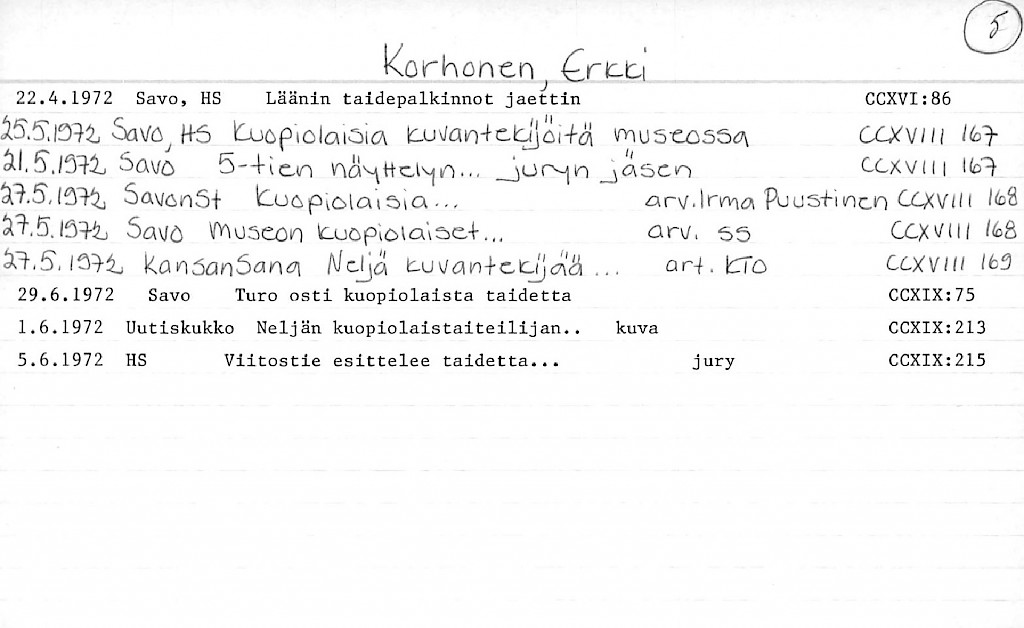 5
Korhonen, Erkki
22.4.1972 Savo, HS Läänin taidepalkinnot jaettin CCXVI:86
25.5.1972 Savo, HS Kuopiolaisia kuvantekijöitä museossa CCXVIII 167
21.5.1972 Savo 5-tien näyttelyn... juryn jäsen CCXVIII 167
27.5.1972 SavonSt Kuopiolaisia... arv. Irma Puustinen CCXVIII 168
27.5.1972 Savo Museon kuopiolaiset... arv. SS CCXVIII 168
27.5.1972 KansanSana Neljä kuvantekijää... art. KTO CCXVIII 169
29.6.1972 Savo Turo osti kuopiolaista taidetta CCXIX:75
1.6.1972 Uutiskukko Neljän kuopiolaistaiteilijan.. kuva CCXIX:213
5.6.1972 HS Viitostie esittelee taidetta... jury CCXIX:215